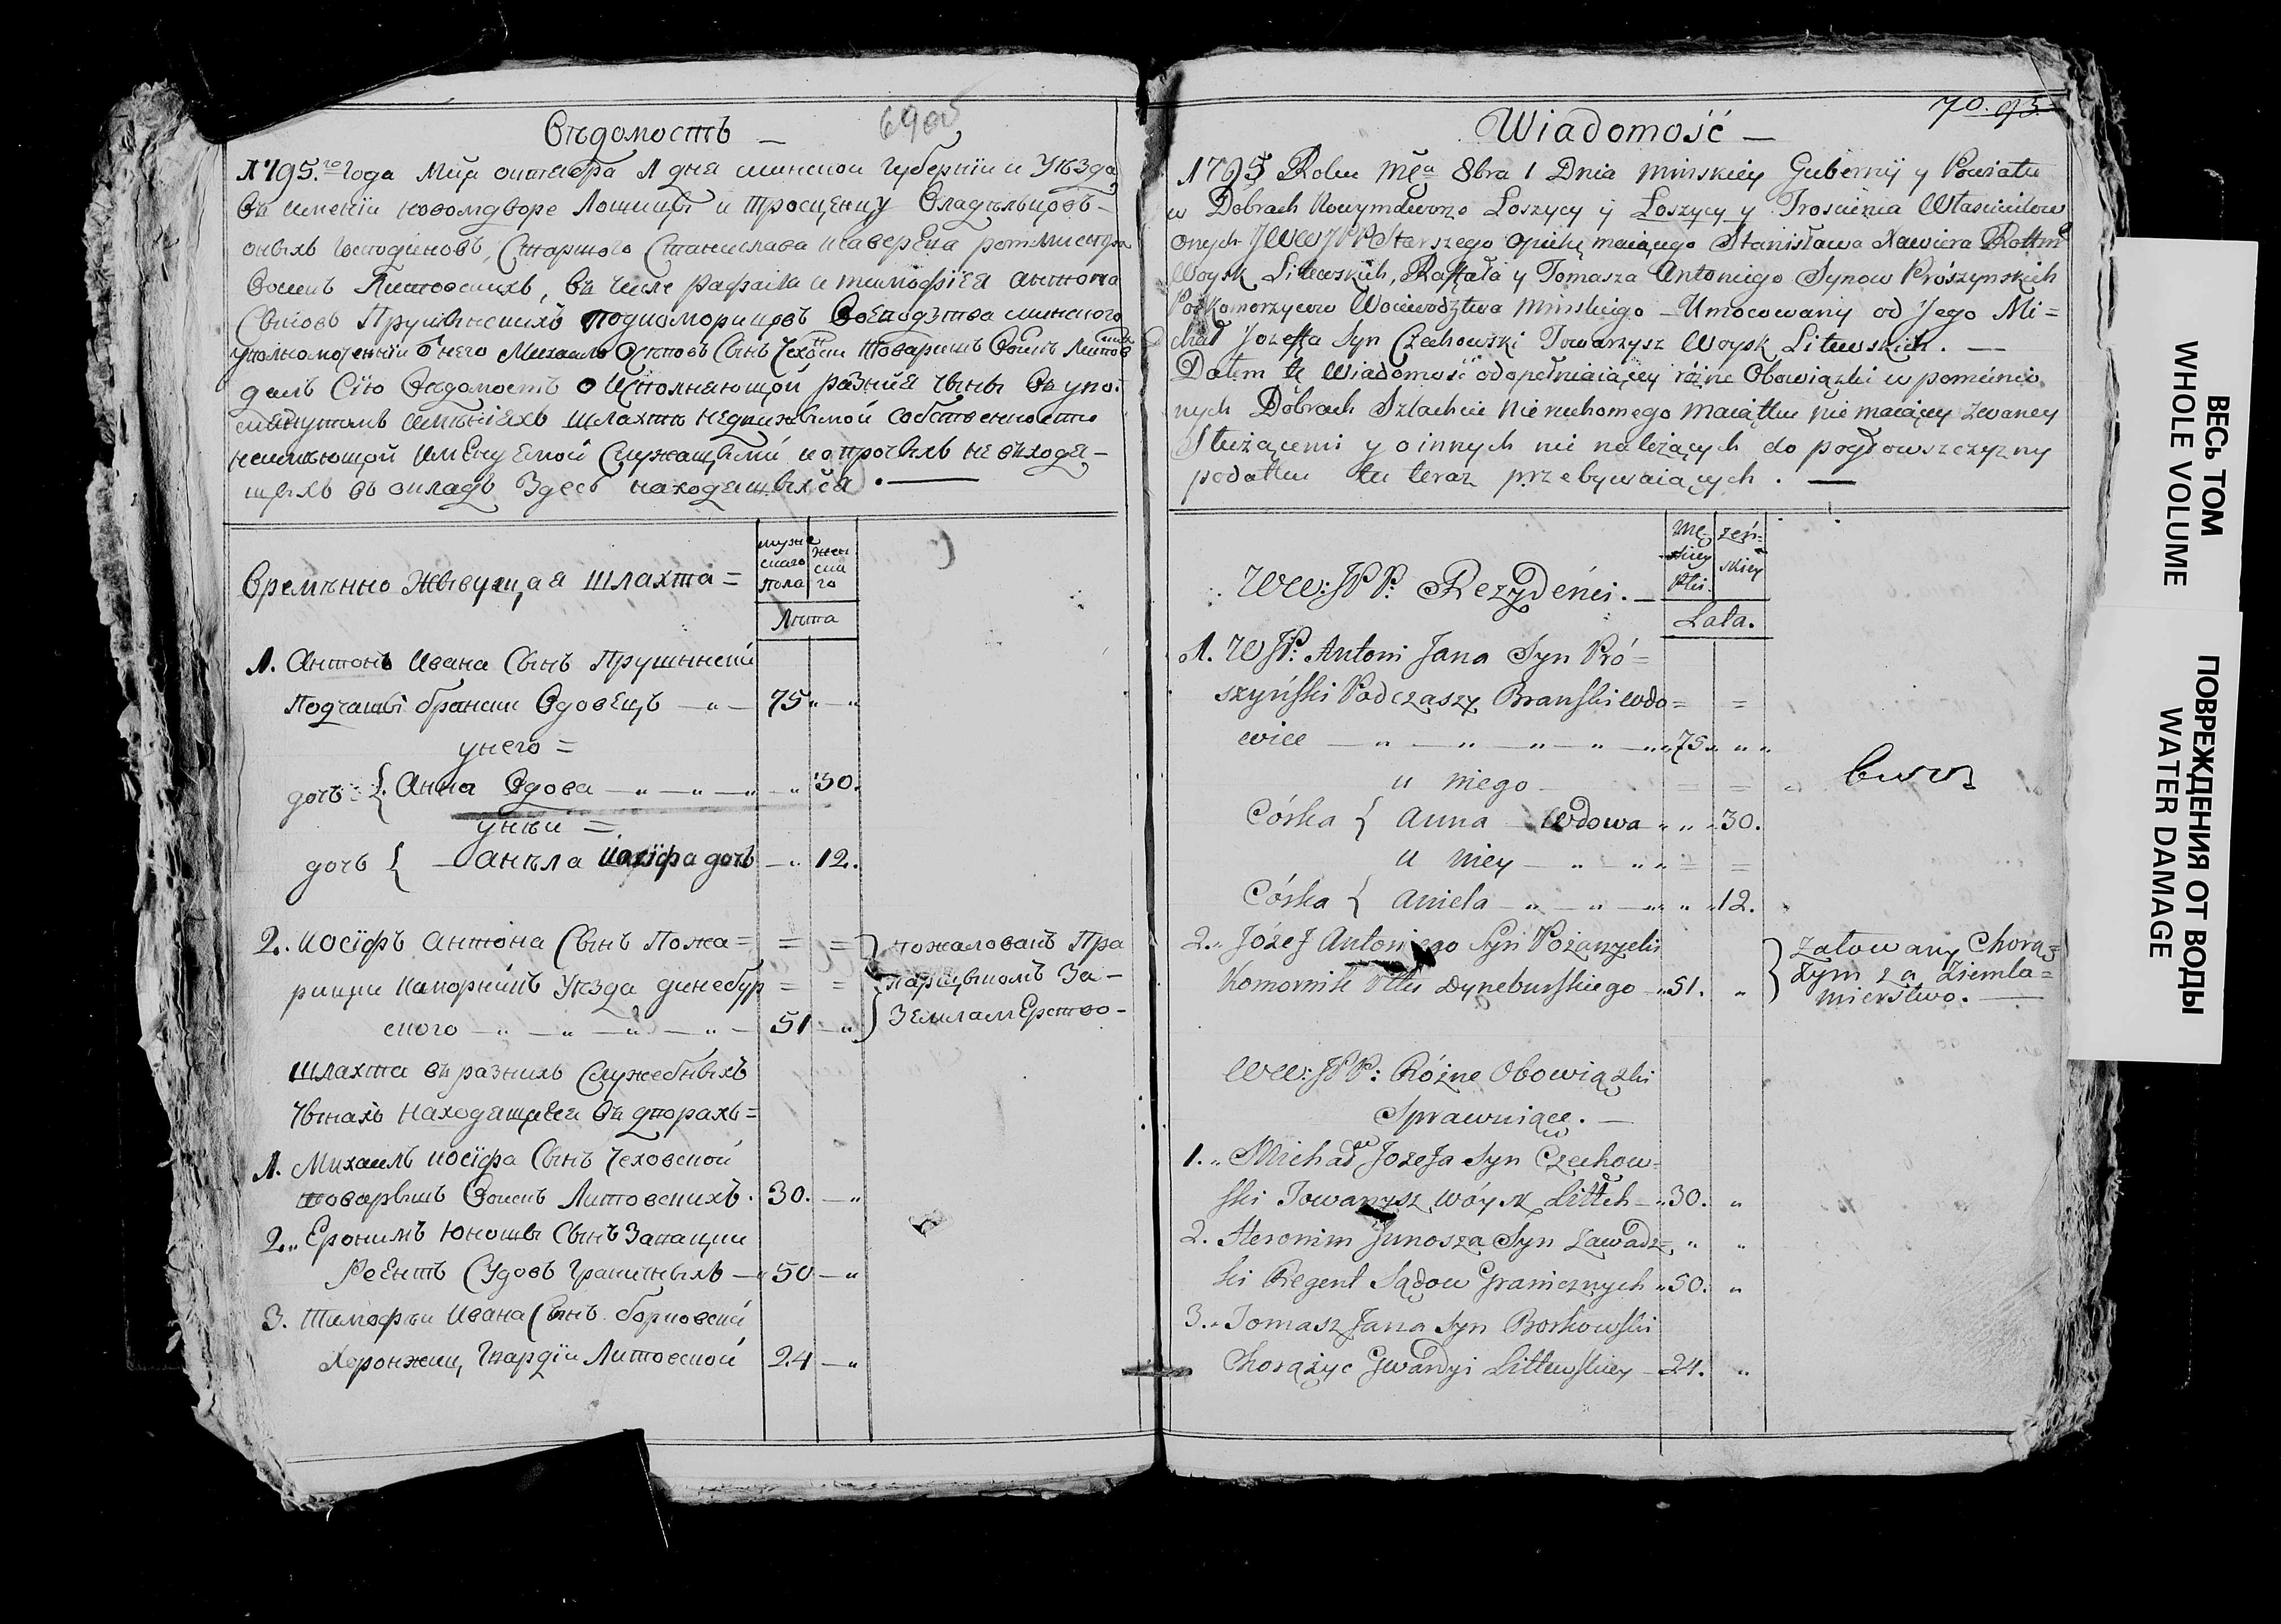 69об
Вѣдомостъ —
1795.го года Мца октебра 1 дня минской губерніи и Уѣзда
въ имѣніи новомдворе Лошицы и Тросценцу Владѣльцовъ-
оныхъ господиновъ, Старшого Станислава Ксаверего ротмистра
Воискъ Литовскихъ, въ числе рафаила и тимофѣея антона
Сыновъ Прушынскихъ подкоморицовъ Воеводзтва минского
уполномоченній от него Михаилъ Осиповъ Сынъ Чеховски товаришъ Воискъ Литов
далъ Сїю Вѣдомость о исполняющой разнїя чыны въ упо-
менутыхъ имѣнїехъ шлахтѣ недвижымой собственности
неимѣющой именуемой Служащыми и о прочыхъ не въходя-
щыхъ въ окладъ здесь находящыхся. —
Времѣнно живущая шлахта =
мужескаго пола
женскаго
Лѣта
1. Антонъ Ивана Сынъ Прушински
Подчашы брански Вдовецъ — 75 „ — „
унего =
дочь { Анна Вдова — „ — „ — „ 30.
унѣй =
дочь { — Анѣла Иосїфа дочь — „ 12.
2. иосїфъ антона Сынъ Пожа = = =
рицки Каморникъ Уѣзда динебур = =
ского — „ — „ — „ — „ — 51 — „
пожалованъ Пра
парщыкомъ За-
Землемерство-
Шлахта въ разнихъ Служебныхъ
Чынахъ находящыеся въ дворахъ =
1. Михаилъ иосїфа Сынъ Чеховской
товарышъ Воискъ Литовскихъ. 30. — „
2. „ Еронимъ Юношы Сынъ Завацки
Реентъ Судовъ Граничныхъ — 50 — „
3. Тимофѣи Ивана Сынъ борковски
Херонжиц Гвардїи Литовской 24 — „
70. 95.
Wiadomość —
1795 Roku Mca 8bra 1 Dnia Minskiey Gubernij y Powiatu
w Dobrach Nowymdworze Łoszycy y Łoszycy y Trościenca Właścicielow
onych JWWJPP Starszego opiekę maiącego Stanisława Xawiera Rottm
Woysk Litewskich, Rafała y Tomasza Antoniego Synow Prószynskich
Podkomorzycow Woiewodztwa Minskiego — Umocowany od Jego Mi =
chał Jozefa Syn Czechowski Towarzysz Woysk Litewskich. —
Dałem tę Wiadomość o dopełniaiącey różne Obowiązki w pomienio
nych Dobrach Szlachcie Nieruchomego Maiątku nie maiącey zwaney
Służącemi y o innych nie należących do pogłowszczyzny
podatku tu teraz przebywaiących. —
WW: JPP: Rezydenci. —
Męskiey Płci.
żeńskiey
Lata.
1. WJP: Antoni Jana Syn Pró =
szyński Podczaszy Branski wdo = =
wiec — „ — „ — „ — „ — „ 75. „ „ „
u niego — = =
Córka { Anna Wdowa „ „ 30.
u niey — „ — „ „ = =
Córka { Aniela — „ — „ — „ „ 12.
2. „ Józef Antoniego Syn Pożarzycki
Komornik Pttu Dyneburskiego „ 51. „
żałowany Chorą =
żym za ziemla =
mierstwo. —
WW: JPP: Różne Obowiązki
Sprawuiące. —
1. „ Michał Jozefa Syn Czechow =
ski Towarzysz Wóysk Littch — „ 30. „
2. Heronim Junosza Syn Zawadz = „ „
ki Regent Sądow Granicznych „ 50. „
3. „ Tomasz Jana Syn Borkowski
Chorążyc Gwardyi Littewskiey — 24. „
ВЕСЬ ТОМ
WHOLE VOLUME
ПОВРЕЖДЕНИЯ ОТ ВОДЫ
WATER DAMAGE